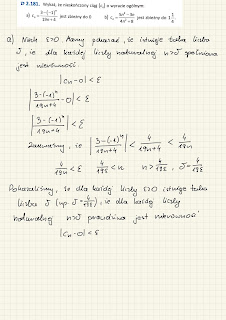 2.181. Wykaż, że nieskończony ciąg (cₙ) o wyrazie ogólnym:
a) cₙ = (3-(-1)ⁿ)/(19n+4) jest zbieżny do 0
jest zbieżny do 1
a) Niech ε>0. Mamy pokazać, że istnieje taka liczba
J, że dla każdej liczby naturalnej n>J spełniona
jest nierówność
|cₙ-0|<ε
|(3-(-1)ⁿ)/(19n+4) - 0|<ε
|(3-(-1)ⁿ)/(19n+4)|<ε
Zauważmy, że |(3-(-1)ⁿ)/(19n+4)| < 4/(19n+4) < 4/(19n)
4/(19n)<ε 4/(19ε)<n n>4/(19ε), J=4/(19ε)
Pokazaliśmy, że dla każdej liczby ε>0 istnieje taka
liczba J (np. J=4/(19ε)), że dla każdej liczby
naturalnej n>J prawdziwa jest nierówność
|cₙ-0|<ε